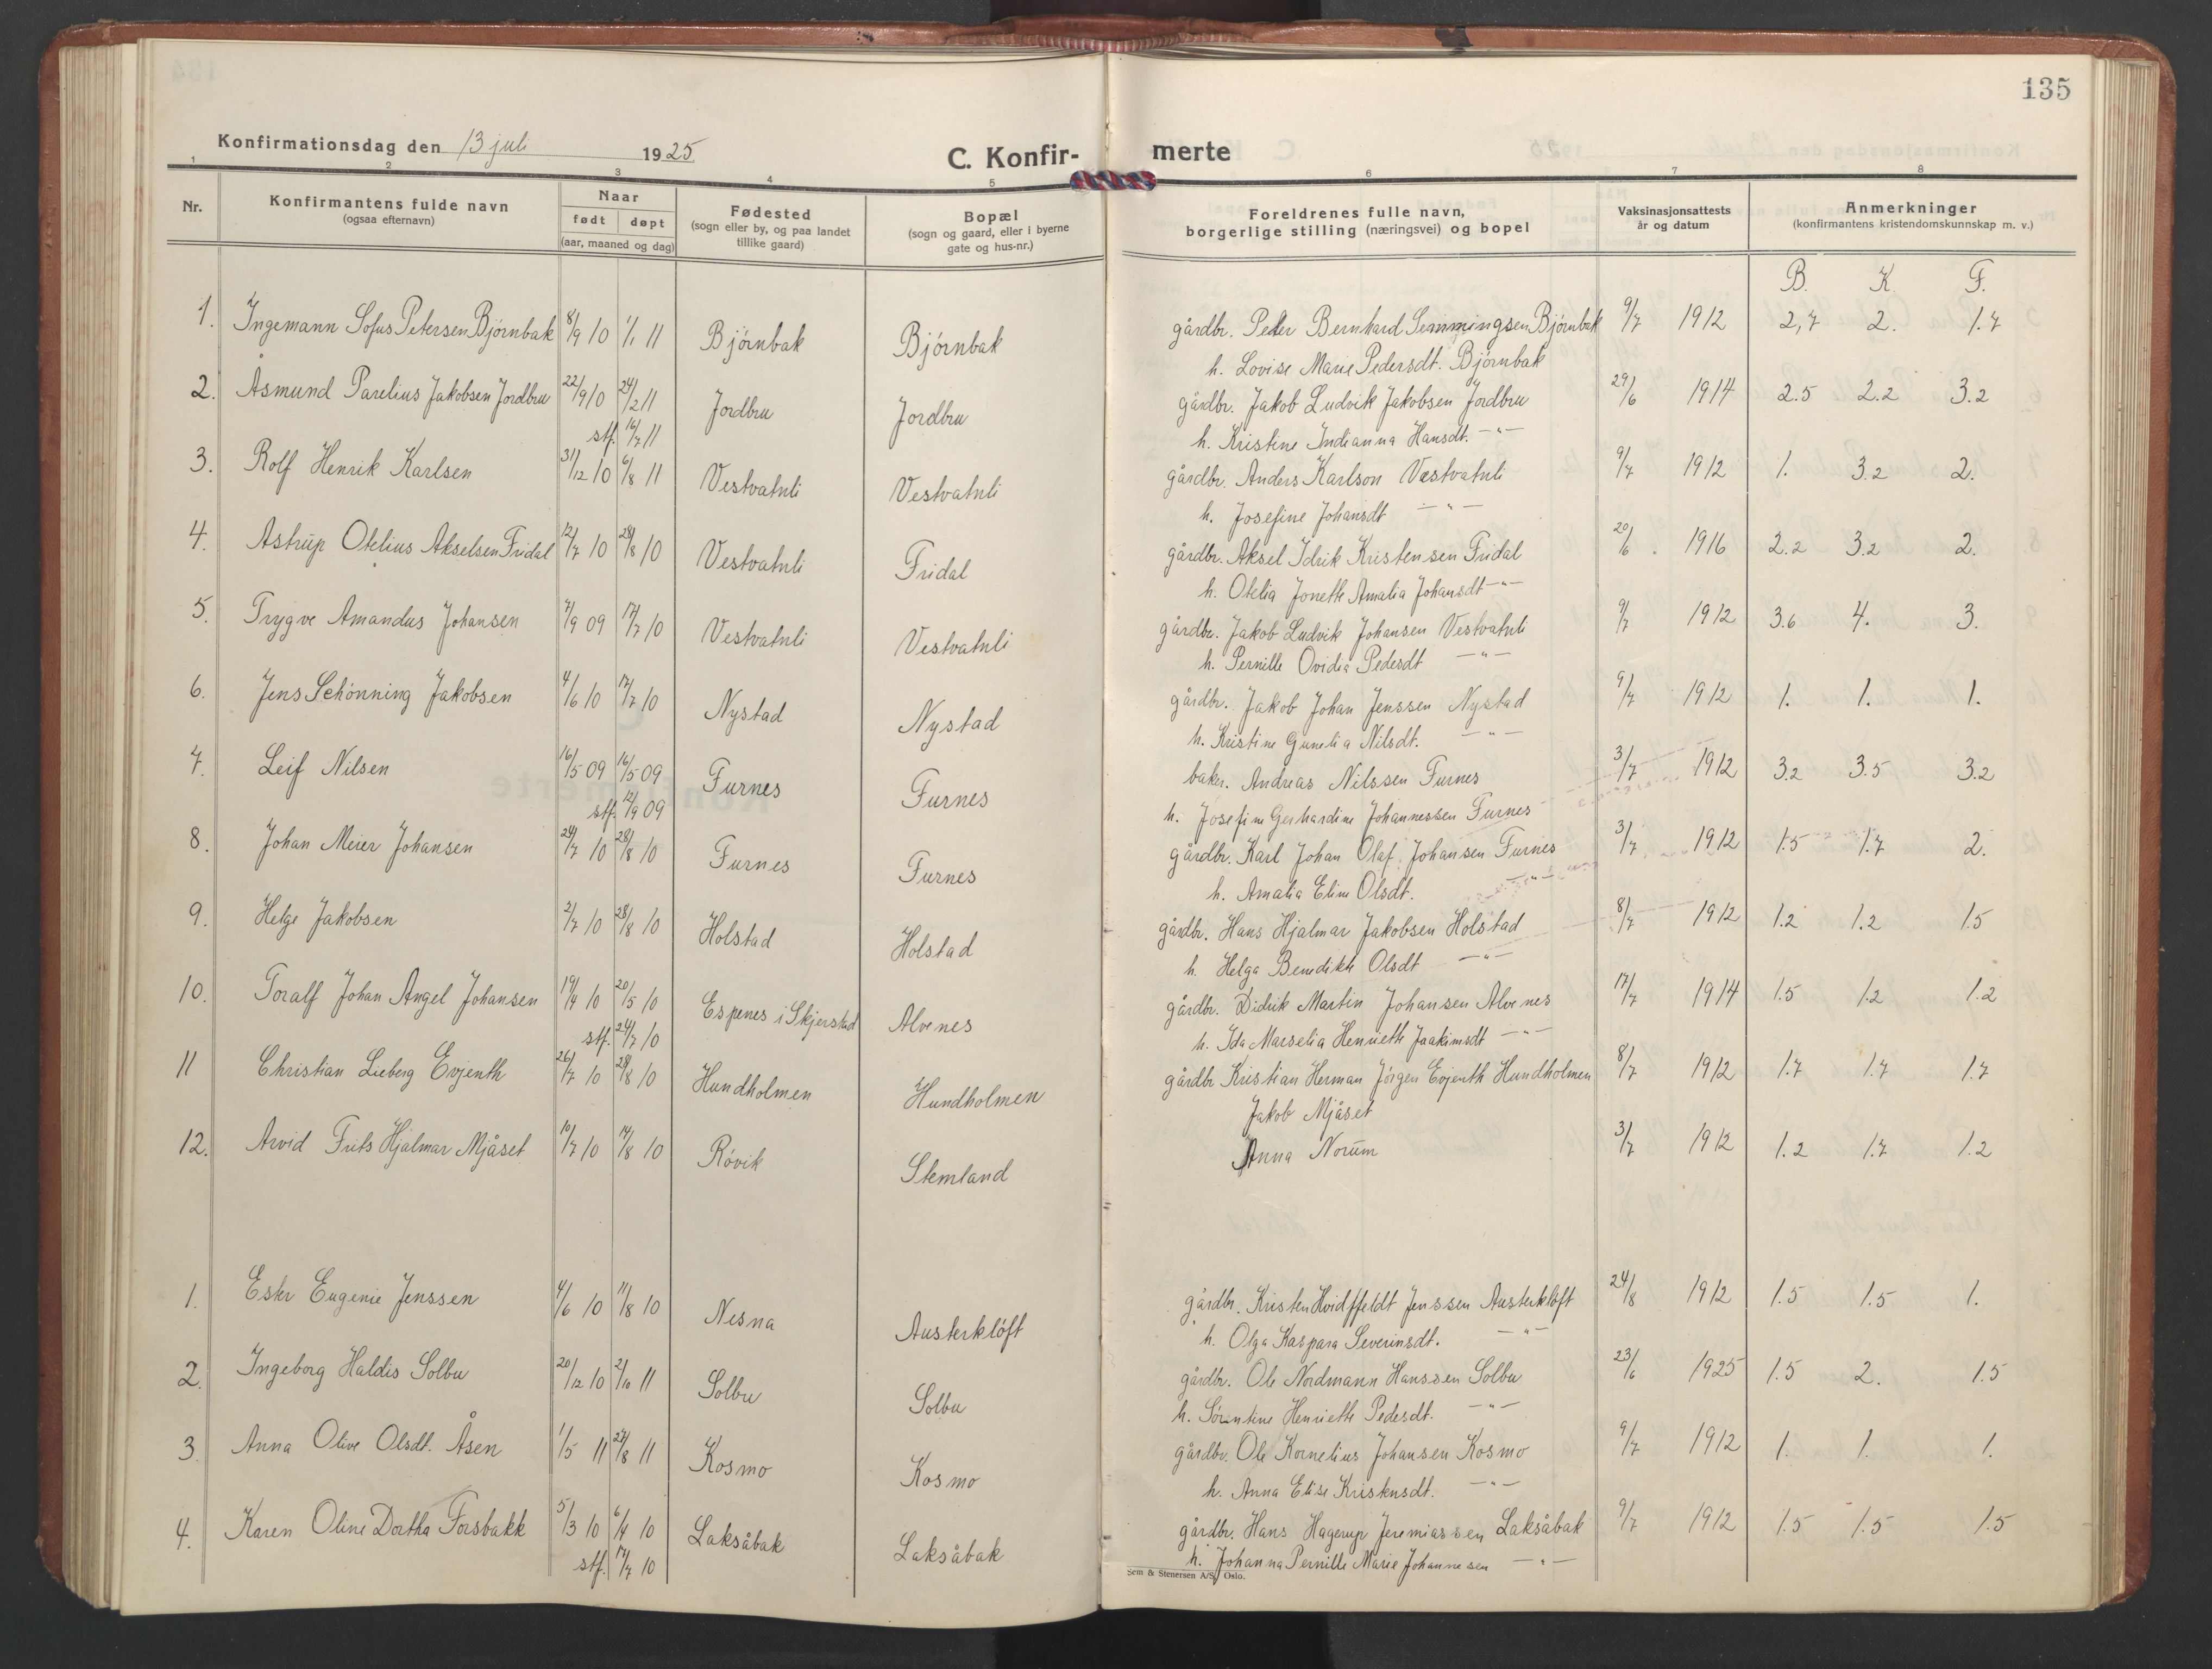 135
Konfirmationsdag den 13 juli 1925
C. Konfir- merte
1 2 3 4 5 6 7 8
Nr.
Konfirmantens fulde navn
(ogsaa efternavn)
Naar
født døpt
(aar, maaned og dag)
Fødested
(sogn eller by, og paa landet
tillike gaard)
Bopæl
(sogn og gaard, eller i byerne
gate og hus-nr.)
Foreldrenes fulle navn,
borgerlige stilling (næringsvei) og bopel
Vaksinasjonsattests
år og datum
Anmerkninger
(konfirmantens kristendomskunnskap m. v.)
B. K F.
1. Ingemann Sofus Petersen Bjørnbak 8/9 10 1/1 11 Bjørnbak Bjørnbak gårdbr. Peder Bernhard Semmingsen Bjørnbak 9/7 1912 2,7 2. 1.7
h. Lovise Marie Pedersdt. Bjørnbak
2. Åsmund Parelius Jakobsen Jordbru 22/9 10 24/2 11 Jordbru Jordbru gårdbr. Jakob Ludvik Jakobsen Jordbru 29/6 1914 2.5 2.2 3.2
stf. 16/7 11 h. Kristine Indianna Hansdt. —"—
3. Rolf Henrik Karlsen 31/12 10 6/8 11 Vestvatnli Vestvatnli gårdbr. Anders Karlson Vestvatnli 9/7 1912 1. 3.2 2.
h. Josefine Johansdt —"—
4. Astrup Otelius Akselsen Fridal 12/7 10 28/8 10 Vestvatnli Fridal gårdbr. Aksel Idrik Kristensen Fridal 20/6 . 1916 2.2 3.2 2.
h. Otelia Jonette Amalia Johansdt —"—
5. Trygve Amandus Johansen 7/9 09 17/7 10 Vestvatnli Vestvatnli gårdbr. Jakob Ludvik Johansen Vestvatnli 9/7 1912 3.6 4. 3.
h. Pernille Ovidia Pedersdt —"—
6. Jens Schönning Jakobsen 4/6 10 17/7 10 Nystad Nystad gårdbr. Jakob Johan Jenssen Nystad 9/7 1912 1. 1. 1.
h. Kristine Gunelia Nilsdt. —"—
7. Leif Nilsen 16/5 09 16/5 09 Furnes Furnes baker. Andreas Nilssen Furnes 3/7 1912 3.2 3.5 3.2
stf. 12/9 09 h. Josefine Gerhardine Johannessen Furnes
8. Johan Meier Johansen 24/7 10 28/8 10 Furnes Furnes gårdbr. Karl Johan Olaf Johansen Furnes 3/7 1912 1.5 1.7 2.
h. Amalia Eline Olsdt. —"—
9. Helge Jakobsen 2/7 10 28/8 10 Holstad Holstad gårdbr. Hans Hjalmar Jakobsen Holstad 8/7 1912 1.2 1.2 1.5
h. Helga Benedikte Olsdt —"—
10. Toralf Johan Angel Johansen 19/4 10 20/5 10 Espenes i Skjerstad Alvenes gårdbr. Didrik Martin Johansen Alvenes 17/7 1914 1.5 1.2 1.2
stf. 24/7 10 h. Ida Marselia Henriette Joakimsdt —"—
11 Christian Lieberg Evjenth 26/7 10 28/8 10 Hundholmen Hundholmen gårdbr Kristian Herman Jørgen Evjenth Hundholmen 8/7 1912 1.7 1.7 1.7
Jakob Mjåset
12. Arvid Frits Hjalmar Mjåset 10/7 10 14/8 10 Røvik Stemland Anna Norum 3/7 1912 1.2 1.7 1.2
1. Ester Eugenie Jenssen 4/6 10 11/8 10 Nesna Austerkløft gårdbr. Kristen Hvidffeldt Jenssen Austerkløft 24/8 1912 1.5 1.5 1.
h. Olga Kaspara Severinsdt. —"—
2. Ingeborg Haldis Solbu 20/12 10 2/10 11 Solbu Solbu gårdbr. Ole Nordmann Hanssen Solbu 23/6 1925 1.5 2. 1.5
h. Sørentine Henriette Pedersdt. —"—
3. Anna Olive Olsdt. Åsen 1/5 11 27/8 11 Kosmo Kosmo gårdbr. Ole Kornelius Johansen Kosmo 9/7 1912 1. 1. 1.
h. Anna Elise Kristensdt. —"—
4. Karen Oline Dorthea Forsbakk 5/3 10 6/4 10 Laksåbak Laksåbak gårdbr. Hans Hagerup Jeremiassen Laksåbak 9/7 1912 1.5 1.5 1.5
stf. 17/7 10 h. Johanna Pernille Marie Johannesen —"—
Sem & Stenersen A/S, Oslo.